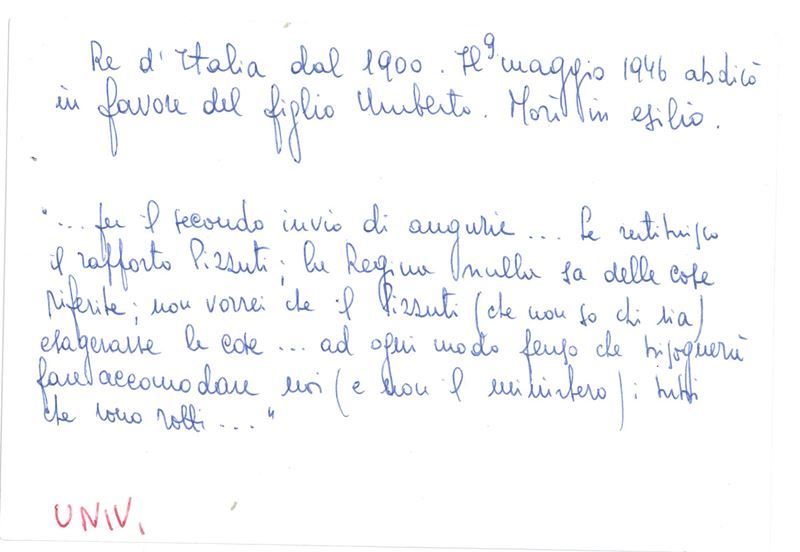 Re d'Italia dal 1900. Il 9 maggio 1946 abdicò
in favore del figlio Umberto. Morì in esilio.
"... per il secondo invio di augurie ... Le restituisco
il rapporto Pizzuti; la Regina nulla sa delle cose
riferite; non vorrei che il Pizzuti (che non so chi sia)
esagerasse le cose ... ad ogni modo penso che bisognerà
fare accomodare noi (e non il ministero) i tubi
che sono rotti ..."
UNIV.